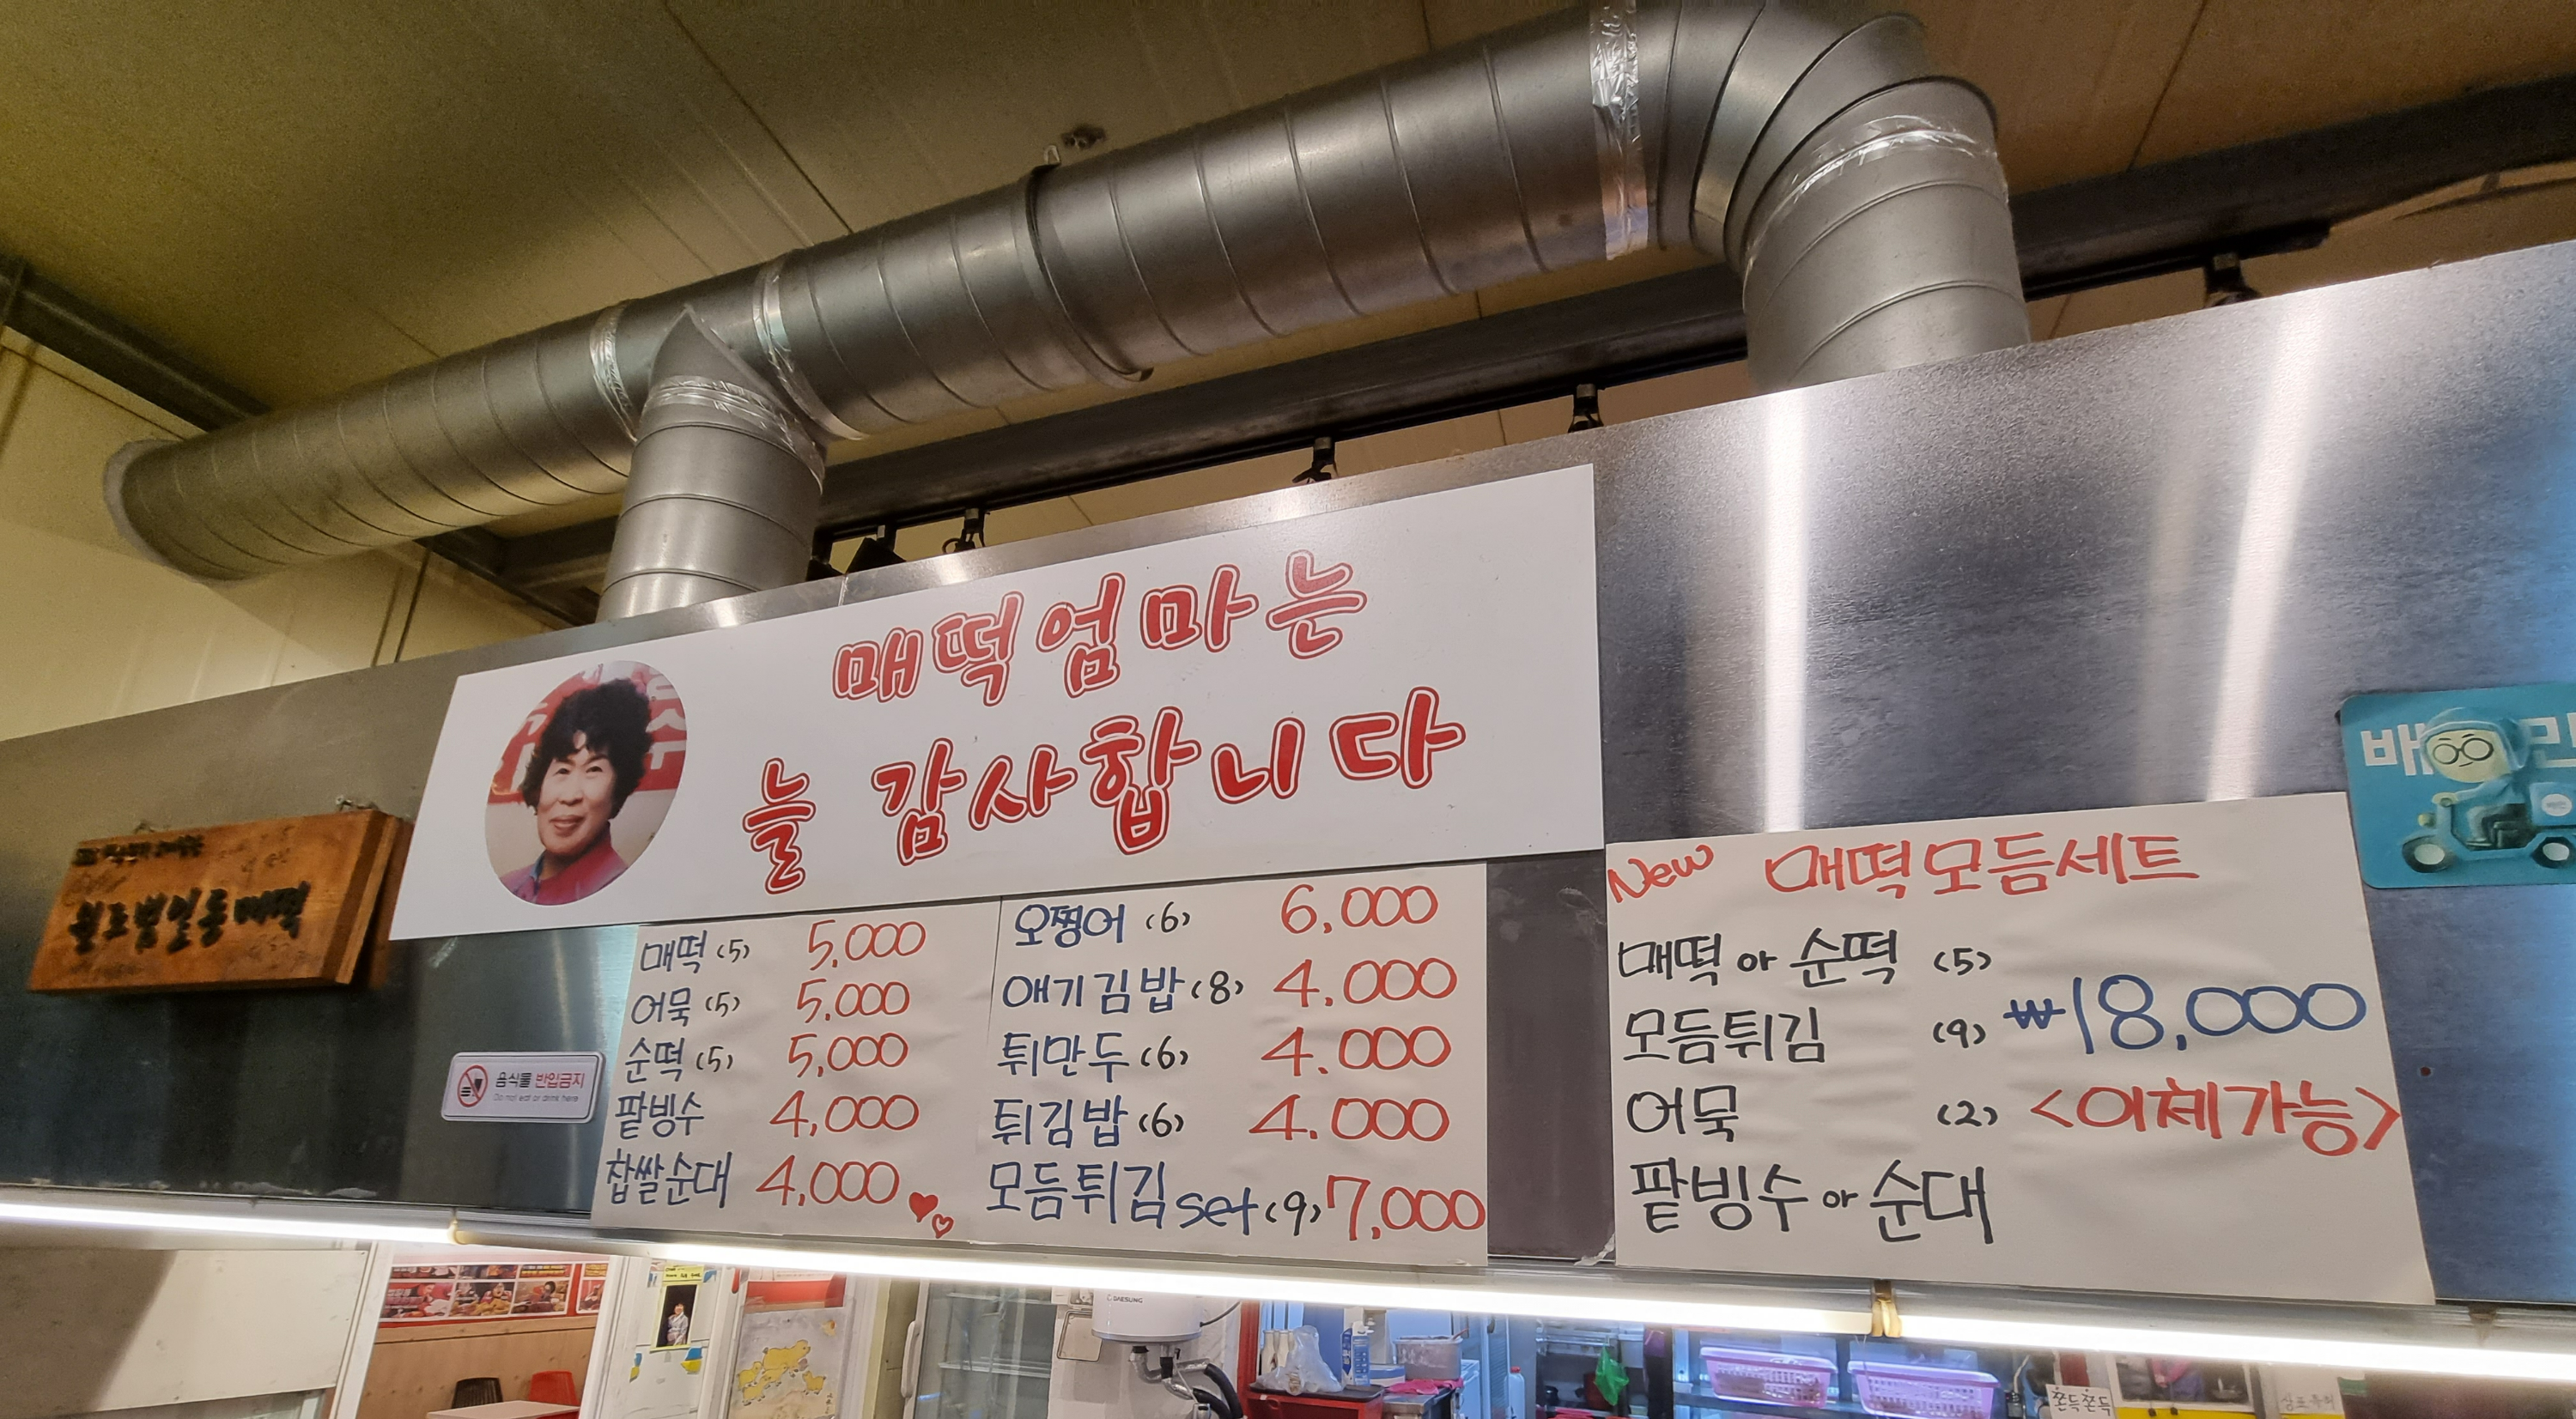 매떡엄마는
늘 감사합니다
범일동매떡
음식물 반입금지
Do not eat or drink here
매떡 (5) 5,000
어묵 (5) 5,000
순떡 (5) 5,000
팥빙수 4,000
찹쌀순대 4,000
오찡어 (6) 6,000
애기김밥 (8) 4.000
튀만두 (6) 4.000
튀김밥 (6) 4.000
모듬튀김 set (9) 7,000
New 매떡모듬세트
매떡 or 순떡 (5)
모듬튀김 (9)
어묵 (2)
팥빙수 or 순대
₩18,000
<이체가능>
배 민
DAESUNG
쫀득쫀득